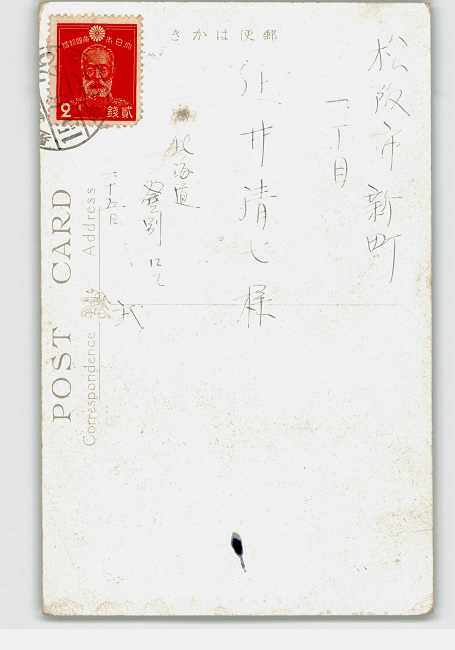 郵便はかき
松阪市新町
一丁目
井清七様
北海道
登別にて
二十五日
POST CARD
Address
Correspondence
大日本帝國郵便
2 銭貳